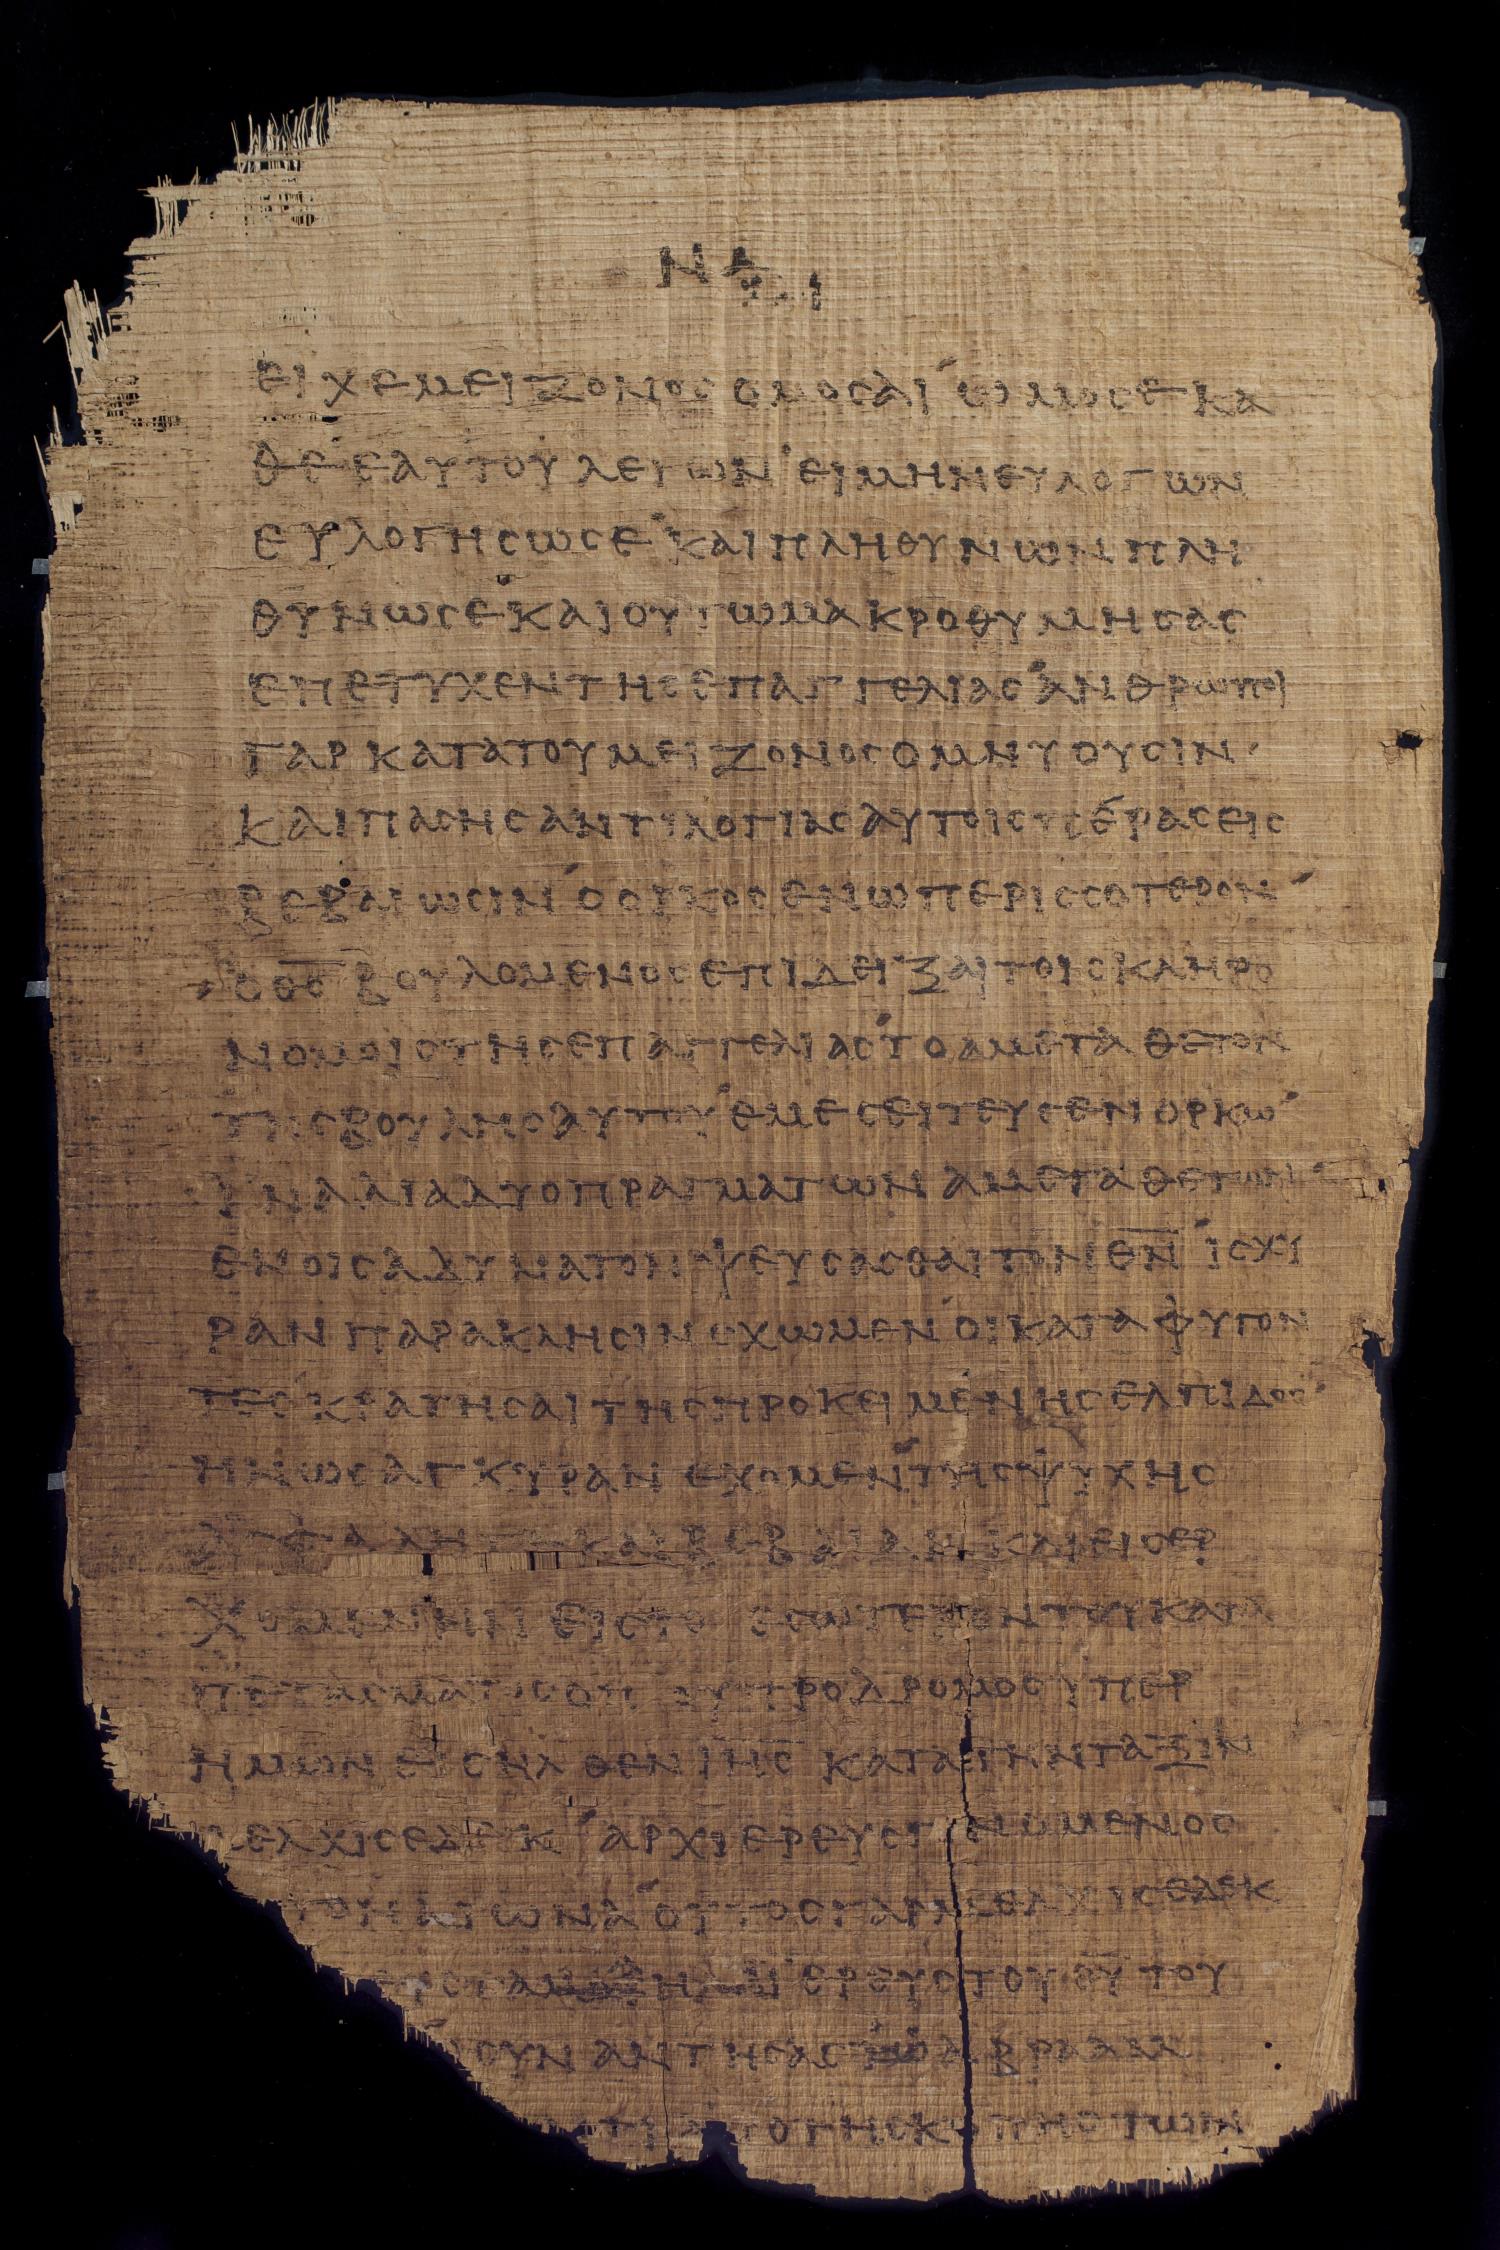 ΕΙΧΕΜΕΙΖΟΝΟΣΟΜΟΣΑΙΩΜΟΣΕΚΑ
ΘΕΕΑΥΤΟΥΛΕΓΩΝΕΙΜΗΝΕΥΛΟΓΩΝ
ΕΥΛΟΓΗΣΩΣΕΚΑΙΠΛΗΘΥΝΩΝΠΛΗ
ΘΥΝΩΣΕΚΑΙΟΥΤΩΜΑΚΡΟΘΥΜΗΣΑΣ
ΕΠΕΤΥΧΕΝΤΗΣΕΠΑΓΓΕΛΙΑΣΑΝΘΡΩΠΟΙ
ΓΑΡΚΑΤΑΤΟΥΜΕΙΖΟΝΟΣΟΜΝΥΟΥΣΙΝ
ΚΑΙΠΑΣΗΣΑΝΤΙΛΟΓΙΑΣΑΥΤΟΙΣΠΕΡΑΣΕΙΣ
ΒΕΒΑΙΩΣΙΝΟΟΡΚΟΣΕΝΩΠΕΡΙΣΣΟΤΕΡΟΝ
ΟΘ̅Σ̅ΒΟΥΛΟΜΕΝΟΣΕΠΙΔΕΙΞΑΙΤΟΙΣΚΛΗΡΟ
ΝΟΜΟΙΣΤΗΣΕΠΑΓΓΕΛΙΑΣΤΟΑΜΕΤΑΘΕΤΟΝ
ΤΗΣΒΟΥΛΗΣΑΥΤΟΥΕΜΕΣΕΙΤΕΥΣΕΝΟΡΚΩ
ΙΝΑΔΙΑΔΥΟΠΡΑΓΜΑΤΩΝΑΜΕΤΑΘΕΤΩΝ
ΕΝΟΙΣΑΔΥΝΑΤΟΝΨΕΥΣΑΣΘΑΙΤΟΝΘ̅Ν̅ΙΣΧΥ
ΡΑΝΠΑΡΑΚΛΗΣΙΝΕΧΩΜΕΝΟΙΚΑΤΑΦΥΓΟΝ
ΤΕΣΚΡΑΤΗΣΑΙΤΗΣΠΡΟΚΕΙΜΕΝΗΣΕΛΠΙΔΟΣ
ΗΝΩΣΑΓΚΥΡΑΝΕΧΟΜΕΝΤΗΣΨΥΧΗΣ
ΚΑΙΒΕΒΑΙΑΝΚΑΙΕΙΣΕΡ
ΧΟΜΕΝΗΝΕΙΣΤΟΕΣΩΤΕΡΟΝΤΟΥΚΑΤΑ
ΠΕΤΑΣΜΑΤΟΣΟΠΟΥΠΡΟΔΡΟΜΟΣΥΠΕΡ
ΗΜΩΝΕΙΣΗΛΘΕΝΙ̅Η̅Σ̅ΚΑΤΑΤΗΝΤΑΞΙΝ
ΜΕΛΧΙΣΕΔΕΚΑΡΧΙΕΡΕΥΣΓΕΝΟΜΕΝΟΣ
ΤΟΝΑΙΩΝΑΟΥΤΟΣΓΑΡΜΕΛΧΙΣΕΔΕΚ
ΙΕΡΕΥΣΤΟΥΘ̅Υ̅ΤΟΥ
ΣΥΝΑΝΤΗΣΑΣΑΒΡΑΑΜ
ΑΠΟΤΗΣΚΟΠΗΣΤΩΝ